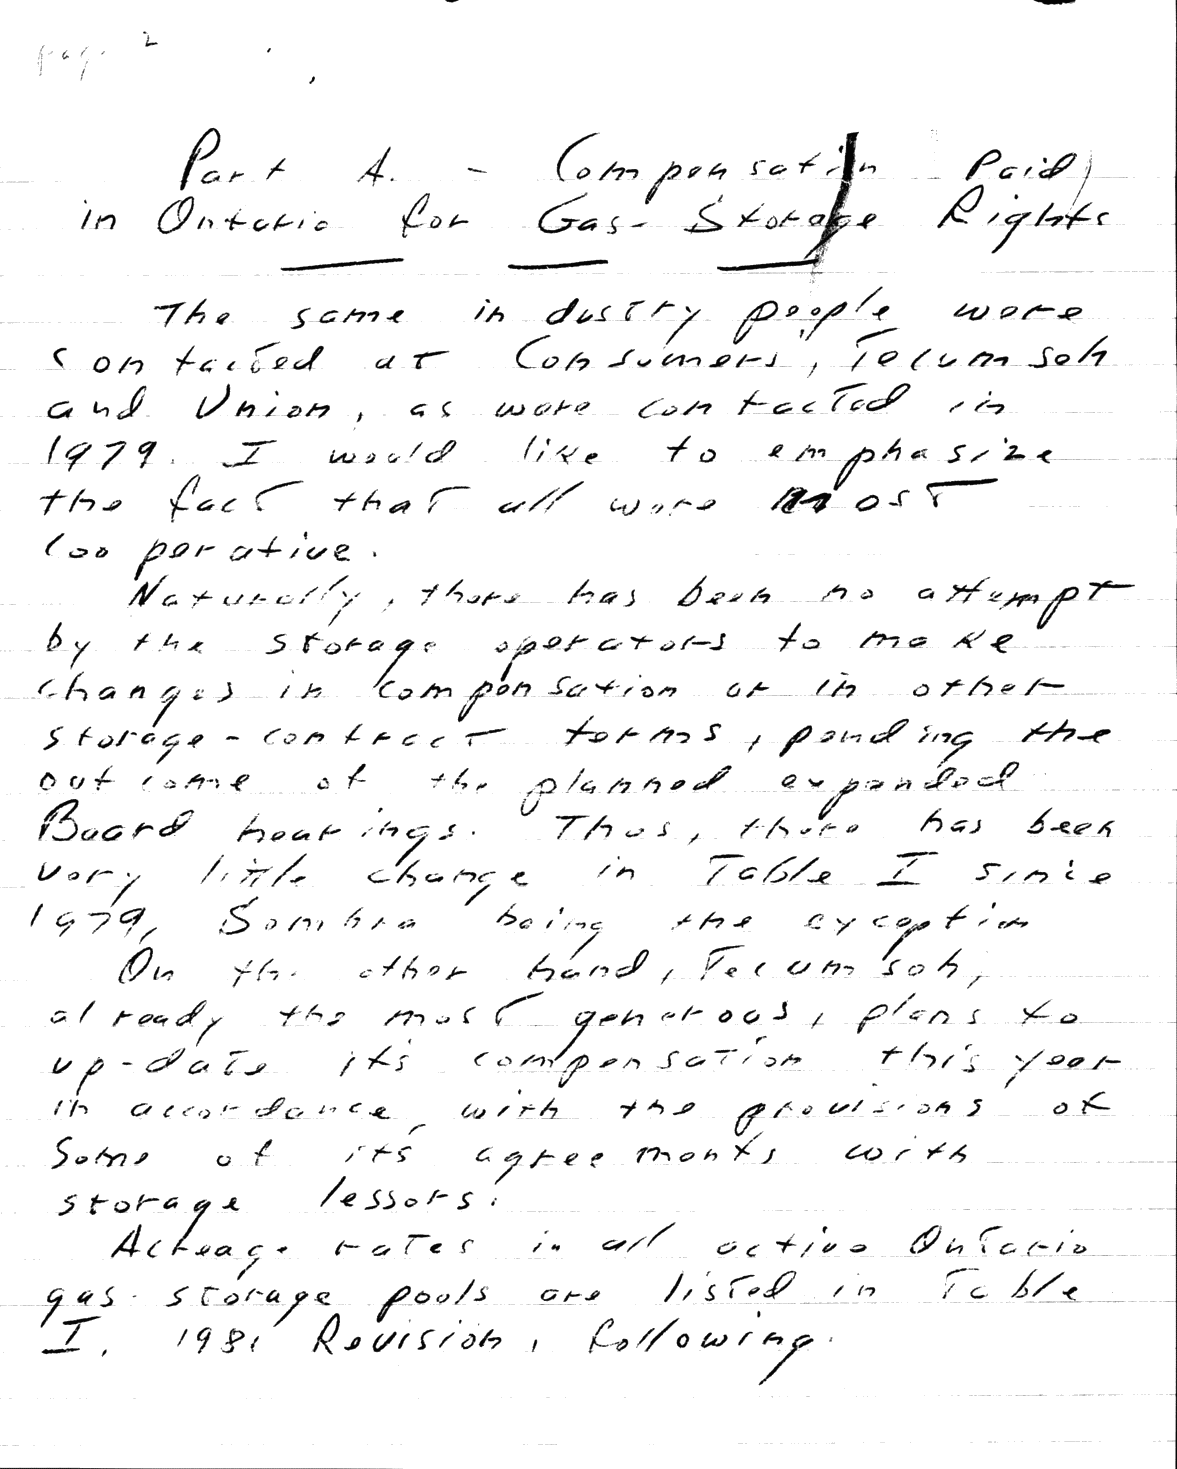 page 2
Part A. - Compensation Paid
in Ontario for Gas-Storage Rights
The same industry people were
contacted at Consumers', Tecumseh
and Union, as were contacted in
1979. I would like to emphasize
the fact that all were most
cooperative.
Naturally, there has been no attempt
by the storage operators to make
changes in compensation or in other
storage-contract terms, pending the
outcome of the planned expanded
Board hearings. Thus, there has been
very little change in Table I since
1979, Sombra being the exception
On the other hand, Tecumseh,
already the most generous, plans to
up-date its compensation this year
in accordance with the provisions of
some of its agreements with
storage lessors.
Acreage rates in all active Ontario
gas-storage pools are listed in Table
I, 1981 Revision, following.